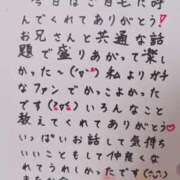 今日はご自宅に呼
んでくれてありがとう!
お兄さんと共通な話
題で盛りあがって楽し
かったー(^▽^) 私よりガチ
なファンでかっこよかった
です(≧▽≦) いろんなこと
教えてくれてありがとう♡
いっぱいお話して気持ち
いいこともして仲良くな
れてうれしかったです(^^)